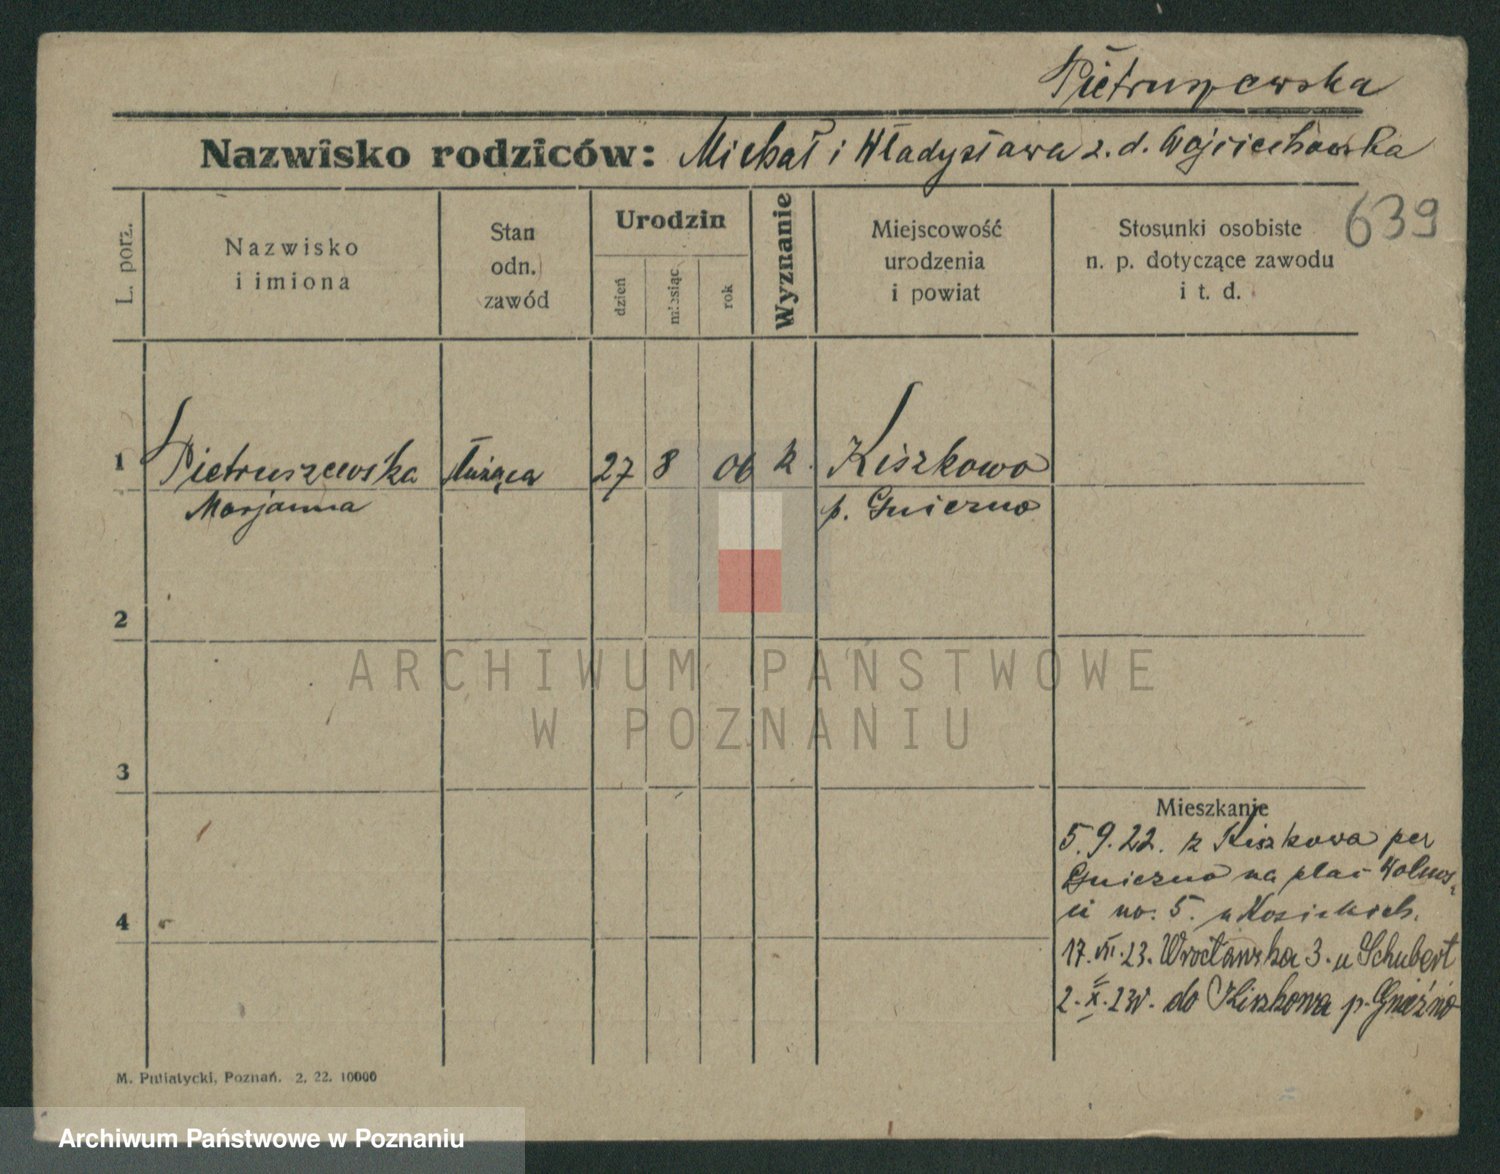 Pietruszewska
Nazwisko rodziców: Michał i Władysława z. d. Wojciechowska
639
L. porz.
Nazwisko
i imiona
Stan
odn.
zawód
Urodzin
dzień
miesiąc
rok
Wyznanie
Miejscowość
urodzenia
i powiat
Stosunki osobiste
n. p. dotyczące zawodu
i t. d.
1 Pietruszewska służąca 27 8 06 k. Kiszkowo
Marjanna p. Gniezno
2
ARCHIWUM PAŃSTWOWE
W POZNANIU
3
Mieszkanie
5. 9. 22. z Kiszkowa per
Gniezno na plac Wolnoś-
ci no. 5. u Kosickich.
4
17. VII. 23. Wrocławska 3. u Schubert
2. X. 23r. do Kiszkowa p. Gnieźno
M. Putiatycki, Poznań. 2. 22. 10000
Archiwum Państwowe w Poznaniu